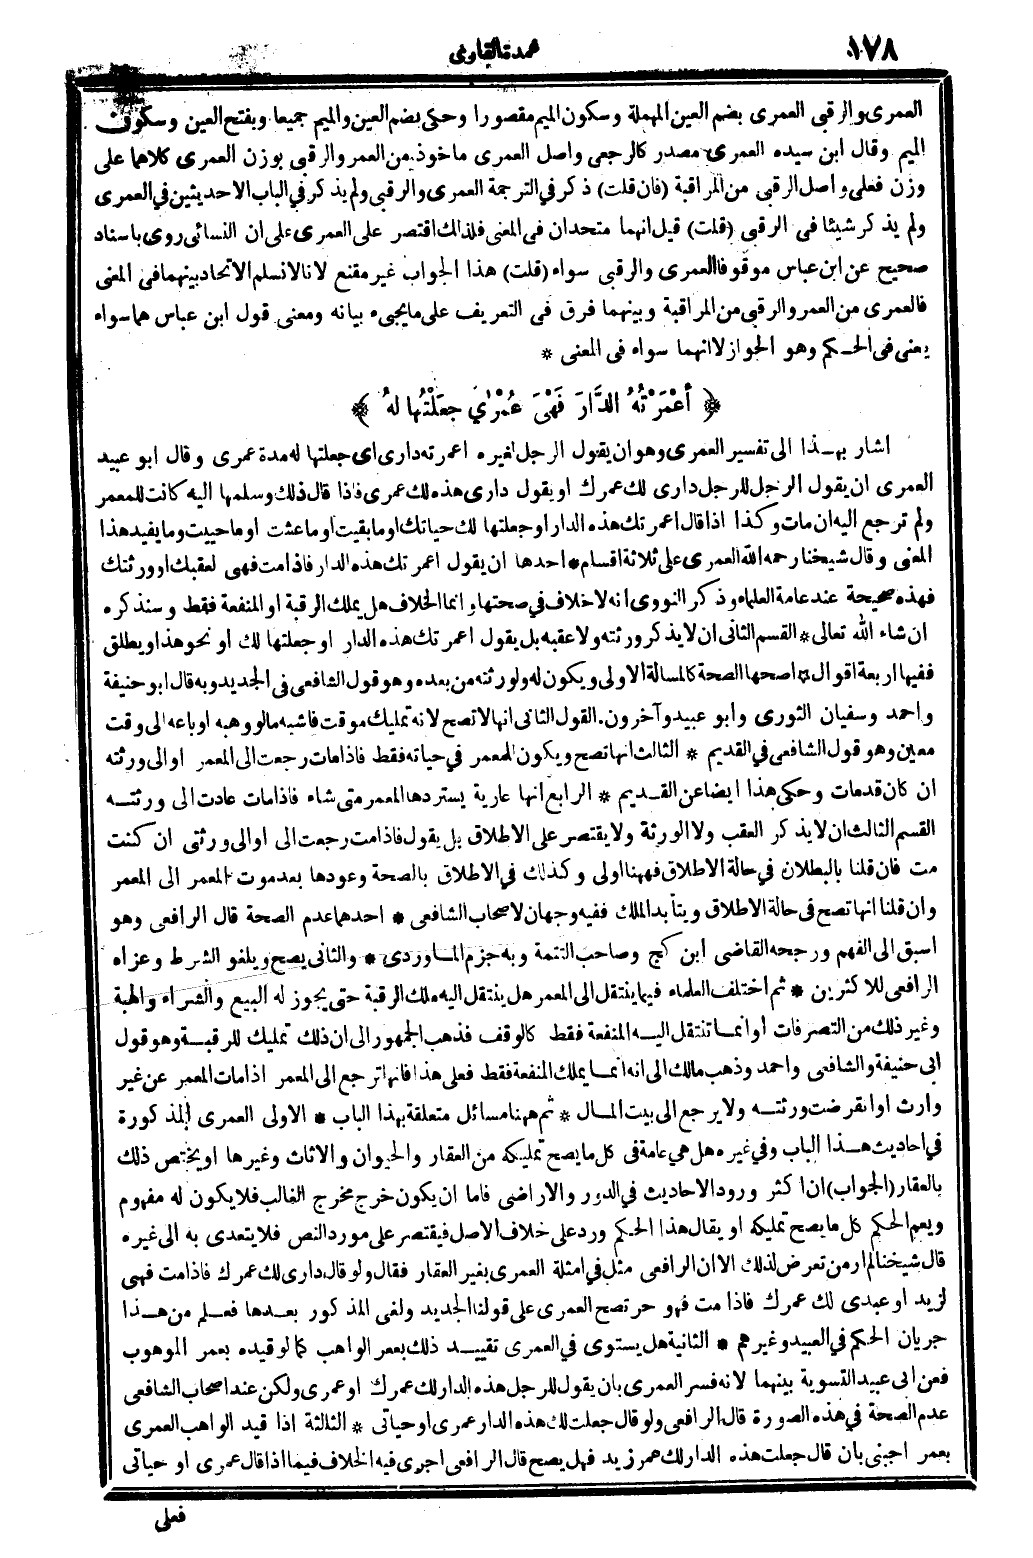 ١٧٨
عمدة القاوى
العمرى والرقبى العمرى بضم العين المهملة وسكون الميم مقصورا وحكى بضم العين والميم جميعا وبفتح العين وسكون
الميم وقال ابن سيده العمرى مصدر كالرجعى واصل العمرى ماخوذ من العمر والرقبى بوزن العمرى كلاهما على
وزن فعلى واصل الرقبى من المراقبة (فان قلت) ذكر فى الترجمة العمرى والرقبى ولم يذكر فى الباب الاحديثين فى العمرى
ولم يذكر شيئا فى الرقبى (قلت) قيل انهما متحدان فى المعنى فلذلك اقتصر على العمرى على ان النسائى روى باسناد
صحيح عن ابن عباس موقوفا العمرى والرقبى سواء (قلت) هذا الجواب غير مقنع لانا لانسلم الاتحاد بينهما فى المعنى
فالعمرى من العمر والرقبى من المراقبة وبينهما فرق فى التعريف على مايجىء بيانه ومعنى قول ابن عباس هما سواء
يعنى فى الحكم وهو الجواز لا انهما سواء فى المعنى *
﴿ أَعْمَرْتُهُ الدَّارَ فَهْىَ عُمْرَى جعَلْتُها لهُ ﴾
اشار بهذا الى تفسير العمرى وهو ان يقول الرجل لغيره اعمرته دارى اى جعلتها له مدة عمرى وقال ابو عبيد
العمرى ان يقول الرجل للرجل دارى لك عمرك او يقول دارى هذه لك عمرى فاذا قال ذلك وسلمها اليه كانت للمعمر
ولم ترجع اليه ان مات وكذا اذا قال اعمرتك هذه الدار او جعلتها لك حياتك او ما بقيت او ما عشت او ما حييت وما يفيد هذا
المعنى وقال شيخنا رحمه الله العمرى على ثلاثة اقسام * احدها ان يقول اعمرتك هذه الدار فاذا مت فهى لعقبك او ورثتك
فهذه صحيحة عند عامة العلماء وذكر النووى انه لا خلاف فى صحتها وانما الخلاف هل يملك الرقبة او المنفعة فقط وسنذكره
ان شاء الله تعالى * القسم الثانى ان لا يذكر ورثته ولا عقبه بل يقول اعمرتك هذه الدار او جعلتها لك او نحو هذا ويطلق
ففيها اربعة اقوال * اصحها الصحة كالمسالة الاولى ويكون له ولورثته من بعده وهو قول الشافعى فى الجديد وبه قال ابو حنيفة
واحمد وسفيان الثورى وابو عبيد وآخرون. القول الثانى انها لا تصح لانه تمليك موقت فاشبه ما لو وهبه او باعه الى وقت
معين وهو قول الشافعى فى القديم * الثالث انها تصح ويكون للمعمر فى حياته فقط فاذا مات رجعت الى المعمر او الى ورثته
ان كان قد مات وحكى هذا ايضا عن القديم * الرابع انها عارية يستردها المعمر متى شاء فاذا مات عادت الى ورثته
القسم الثالث ان لا يذكر العقب ولا الورثة ولا يقتصر على الاطلاق بل يقول فاذا مت رجعت الى او الى ورثتى ان كنت
مت فان قلنا بالبطلان فى حالة الاطلاق فههنا اولى وكذلك فى الاطلاق بالصحة وعودها بعد موت المعمر الى المعمر
وان قلنا انها تصح فى حالة الاطلاق ويتأبد الملك ففيه وجهان لاصحاب الشافعى * احدهما عدم الصحة قال الرافعى وهو
اسبق الى الفهم ورجحه القاضى ابن كج وصاحب التتمة وبه جزم الماوردى * والثانى يصح ويلغو الشرط وعزاه
الرافعى للاكثرين * ثم اختلف العلماء فيما ينتقل الى المعمر هل ينتقل اليه ملك الرقبة حتى يجوز له البيع والشراء والهبة
وغير ذلك من التصرفات أو انما تنتقل اليه المنفعة فقط كالوقف فذهب الجمهور الى ان ذلك تمليك للرقبة وهو قول
ابى حنيفة والشافعى واحمد وذهب مالك الى انه انما يملك المنفعة فقط فعلى هذا فانها ترجع الى المعمر اذا مات المعمر عن غير
وارث او انقرضت ورثته ولا يرجع الى بيت المال * ثم ههنا مسائل متعلقة بهذا الباب * الاولى العمرى المذكورة
فى احاديث هذا الباب وفى غيره هل هى عامة فى كل ما يصح تمليكه من العقار والحيوان والاثاث وغيرها او يختص ذلك
بالعقار (الجواب) ان اكثر ورود الاحاديث فى الدور والاراضى فاما ان يكون خرج مخرج الغالب فلا يكون له مفهوم
ويعم الحكم كل ما يصح تمليكه او يقال هذا الحكم ورد على خلاف الاصل فيقتصر على مورد النص فلا يتعدى به الى غيره
قال شيخنا لم ار من تعرض لذلك الا ان الرافعى مثل فى امثلة العمرى بغير العقار فقال ولو قال دارى لك عمرك فاذا مت فهى
لزيد او عبدى لك عمرك فاذا مت فهو حر تصح العمرى على قولنا الجديد ولغى المذكور بعدها فعلم من هذا
جريان الحكم فى العبيد وغيرهم * الثانية هل يستوى فى العمرى تقييد ذلك بعمر الواهب كما لو قيده بعمر الموهوب
فعن ابى عبيد التسوية بينهما لانه فسر العمرى بان يقول للرجل هذه الدار لك عمرك او عمرى ولكن عند اصحاب الشافعى
عدم الصحة فى هذه الصورة قال الرافعى ولو قال جعلت لك هذه الدار عمرى او حياتى * الثالثة اذا قيد الواهب العمرى
بعمر اجنبى بان قال جعلت هذه الدار لك عمر زيد فهل يصح قال الرافعى اجرى فيه الخلاف فيما اذا قال عمرى او حياتى
فعلى